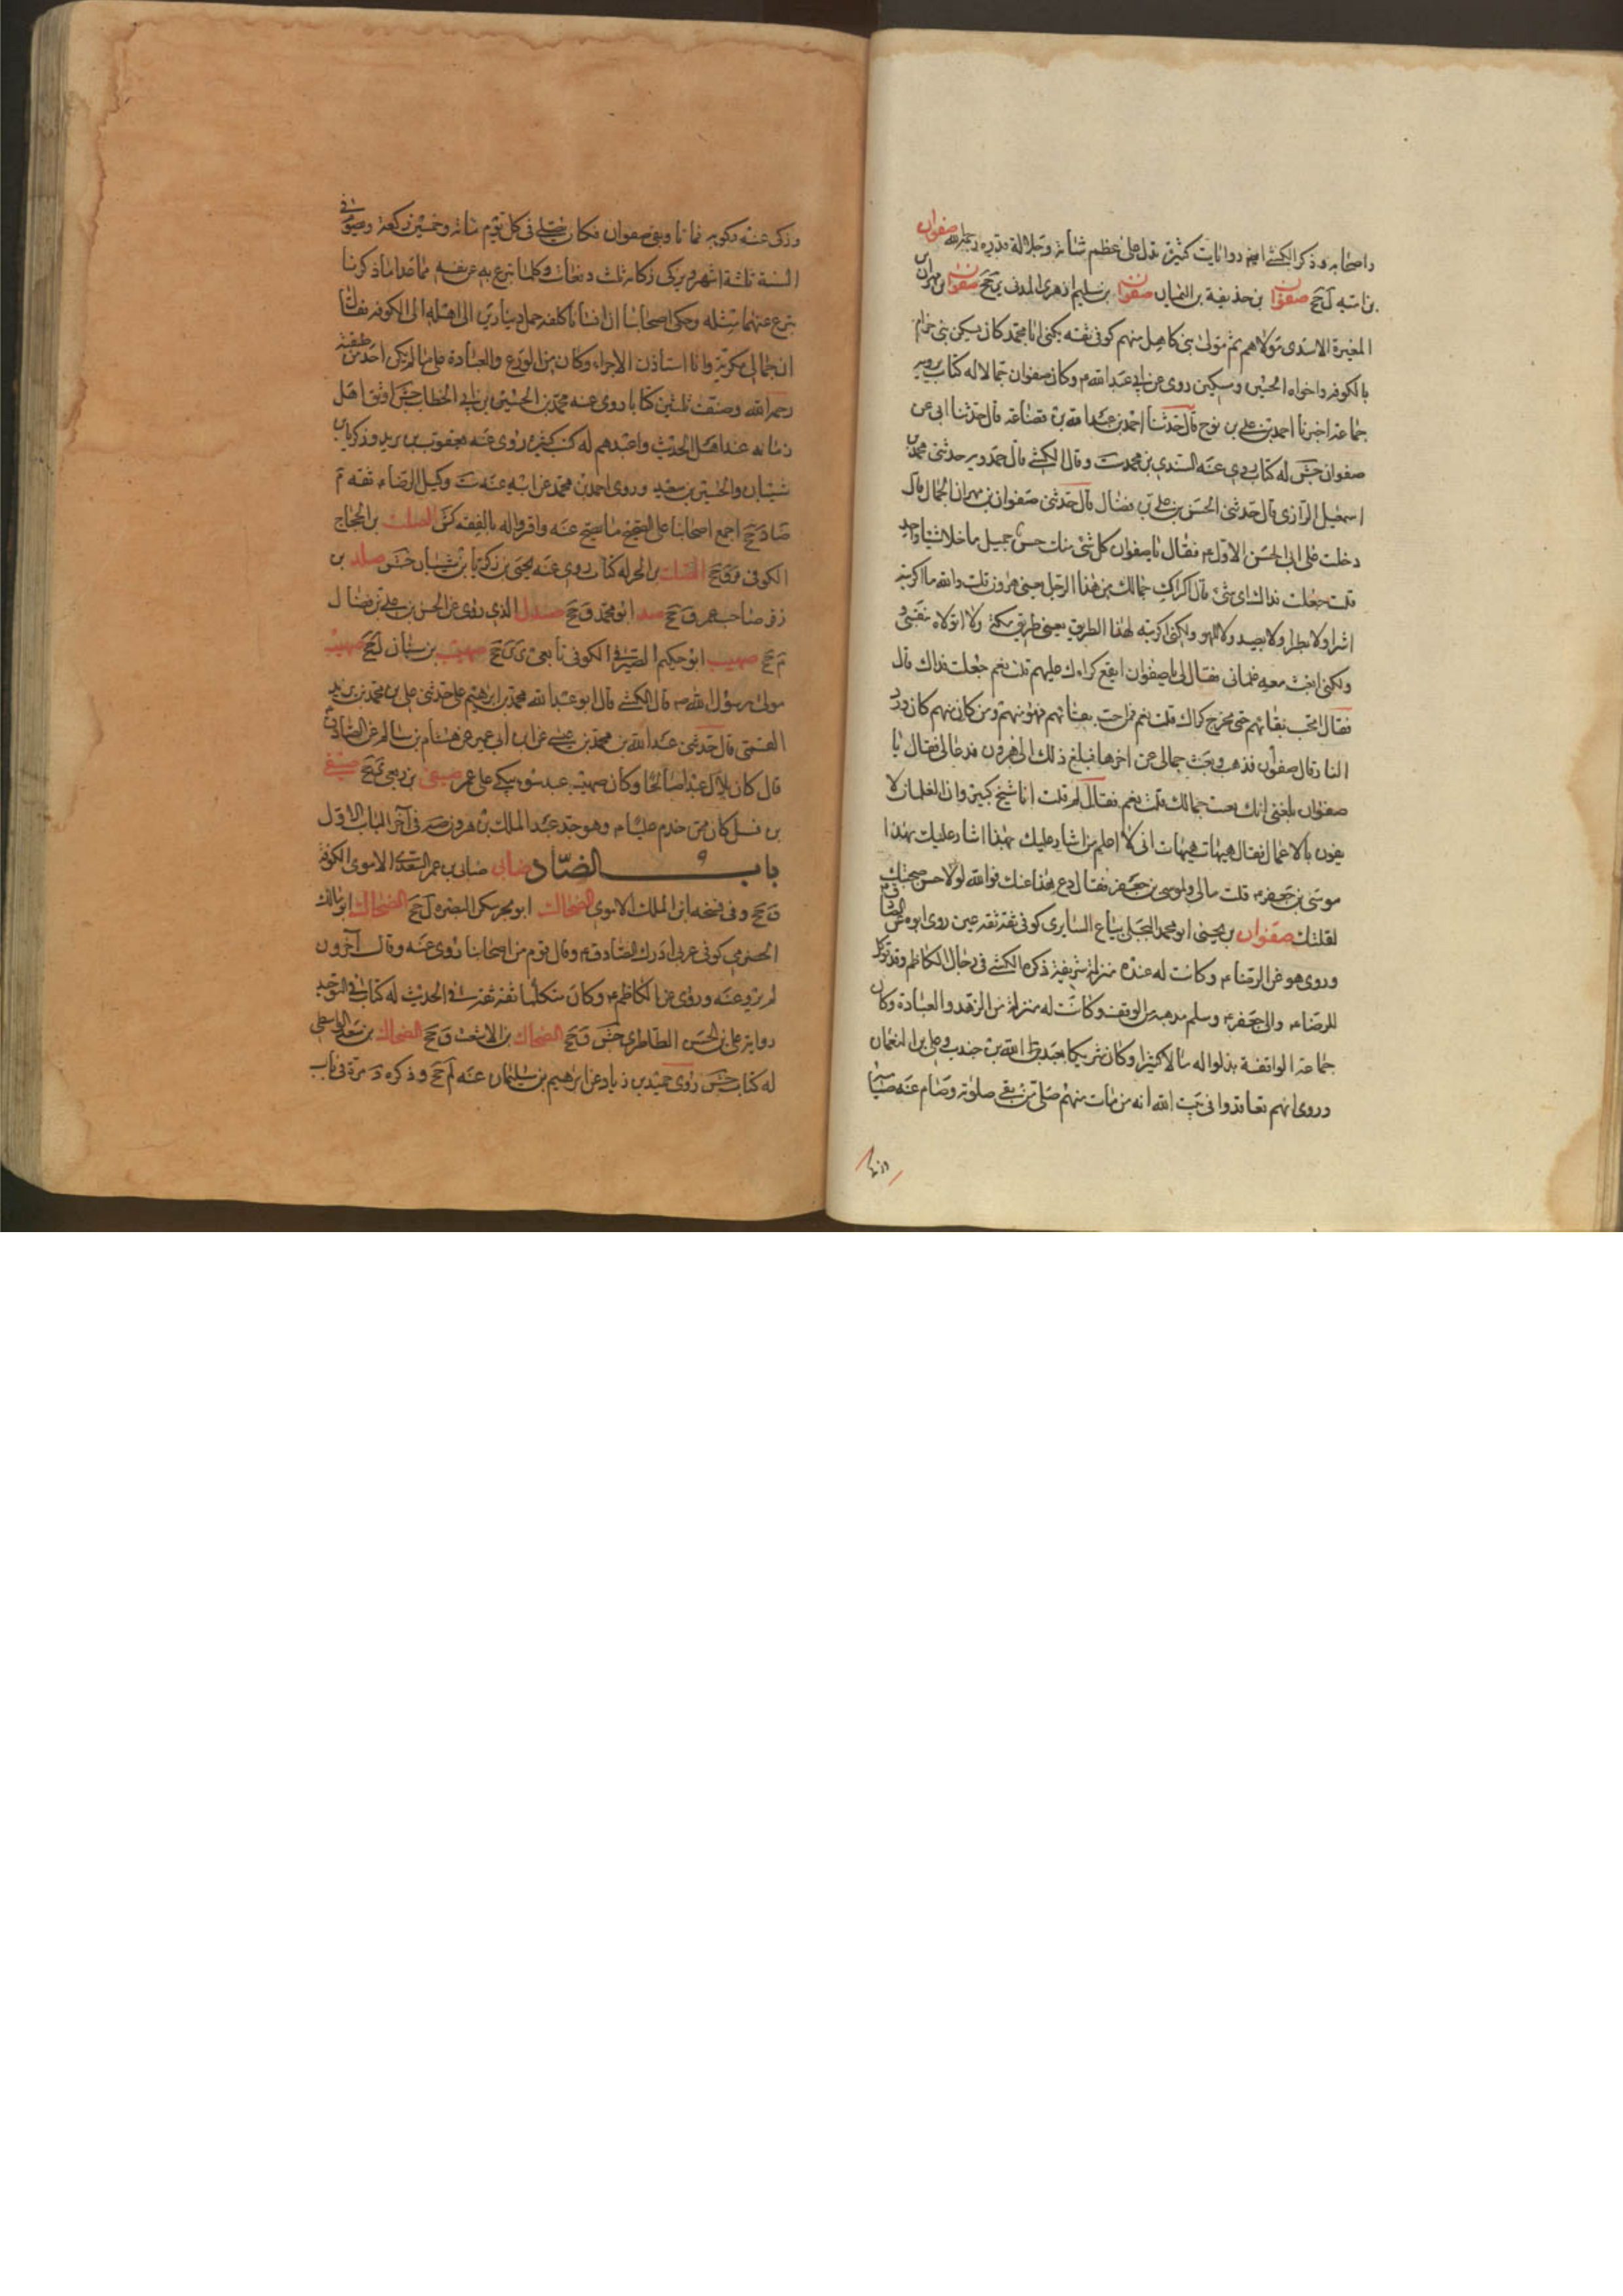 واصحابه وذكر الكشي ايضا روايات كثيرة تدل على عظم شانه وجلالة قدره رحمه الله صفوان
بن امية ل جخ صفوان بن حذيفة بن اليمان صفوان بن سليم الزهري المدني ين جخ صفوان بن مهران
المغيرة الاسدي مولاهم ثم مولى بني كاهل منهم كوفي ثقه يكنى ابا محمد كان يسكن بني حرام
بالكوفه واخواه الحسين ومسكين روى عن ابي عبد الله ع وكان صفوان جمالا له كتاب يرويه
جماعة اخبرنا احمد بن علي بن نوح قال حدثنا احمد بن عبد الله بن قضاعة قال حدثنا ابي عن
صفوان جش له كتاب روى عنه السندي بن محمد ست وقال الكشي قال حمدويه حدثني محمد بن
اسمعيل الرازي قال حدثني الحسن بن علي بن فضال قال حدثني صفوان بن مهران الجمال قال
دخلت على ابي الحسن الاول ع فقال يا صفوان كل شئ منك حسن جميل ما خلا شيئا واحد
قلت جعلت فداك اي شئ قال اكراك جمالك من هذا الرجل يعني هرون قلت والله ما اكريته
اشرا ولا بطرا ولا لصيد ولا للهو ولكني اكريته لهذا الطريق يعني طريق مكة ولا اتولاه بنفسي
ولكني ابعث معه غلماني فقال لي يا صفوان ايقع كراءك عليهم قلت نعم جعلت فداك قال
فقال اتحب بقائهم حتى يخرج كراك قلت نعم قال من احب بقائهم فهو منهم ومن كان منهم كان ورد
النار قال صفوان فذهبت وبعت جمالي عن اخرها فبلغ ذلك الى هرون فدعاني فقال يا
صفوان بلغني انك بعت جمالك قلت نعم فقال لم قلت انا شيخ كبير وان الغلمان لا
يفون بالاعمال فقال هيهات هيهات اني لا اعلم من اشار عليك بهذا اشار عليك بهذا
موسى بن جعفر ع قلت مالي ولموسى بن جعفر فقال دع هذا عنك فوالله لولا حسن صحبتك
لقتلتك صفوان بن يحيى ابو محمد البجلي بياع السابري كوفي ثقة ثقة عين روى ابوه عن
وروى هو عن الرضا ع وكانت له عنده منزلة شريفة ذكره الكشي في رجال الكاظم وقد توكل
للرضا ع وابي جعفر ع وسلم مذهبه من الوقف وكانت له منزلة من الزهد والعبادة وكان
جماعة الواقفة بذلوا له مالا كثيرا وكان شريكا لعبد الله بن جندب وعلي بن النعمان
وروى انهم تعاقدوا في بيت الله انه من مات منهم صلى من بقي صلوته وصام عنه صيامه
وزكى عنه زكوته فماتا وبقي صفوان فكان يصلي في كل يوم مائة وخمسين ركعة وصوم في
السنة ثلثة اشهر ويزكي زكاته ثلث دفعات وكلما تبرع به عن نفسه مما عدا ما ذكرنا
تبرع عنهما مثله وحكى اصحابنا ان انسانا كلفه حمل دينارين الى اهله الى الكوفه فقال
ان جمالي مكرية وانا استاذن الاجراء وكان من الورع والعبادة على ما لم يكن احد من طبقته
رحمه الله وصنف ثلثين كتابا روى عنه محمد بن الحسين بن ابي الخطاب جش اوثق اهل
زمانه عند اهل الحديث واعبدهم له كتب كثيرة روى عنه يعقوب بن يزيد وذكريا بن
شيبان والحسين بن سعيد وروى احمد بن محمد عن ابيه عنه ست وكيل الرضا ع ثقه م
ضا د جخ اجمع اصحابنا على تصحيح ما يصح عنه واقروا له بالفقه كش الصلت بن الحجاج
الكوفي ق جخ الصلت بن الحر له كتاب روى عنه يحيى بن زكريا بن شيبان جش صلد بن
زفر صاحب عمر ق جخ صد ابو محمد ق جخ صندل الذي روى عن الحسن بن علي بن فضال
م جخ صهيب ابو حكيم الصيرفي الكوفي تابعي ين جخ صهيب بن سنان ل جخ صهيب
مولى رسول الله ص قال الكشي قال ابو عبد الله محمد بن ابراهيم علي حدثني علي بن محمد بن يزيد
القمي قال حدثني عبد الله بن محمد بن عيسى عن ابن ابي عمير عن هشام بن سالم عن الصادق
قال كان بلال عبدا صالحا وكان صهيب عبد سوء يبكي على عمر صيفي بن ربعي ي جخ صيفي
بن فسيل كان ممن خدم عليا ع وهو جد عبد الملك بن هرون صه في آخر الباب الاول
باب الضّاد ضابي ضابي بن عمر السعدي الاموي الكوفي
ق جخ وفي نسخه ابن الملك الاموي الضحاك ابو بحر سكن البصره ل جخ الضحاك ابو مالك
الحضرمي كوفي عربي ادرك الصادق ع وقال قوم من اصحابنا روى عنه وقال آخرون
لم يرو عنه وروى عن الكاظم ع وكان متكلما ثقة ثقة في الحديث له كتاب في التوحيد
رواية علي بن الحسن الطاطري جش ق جخ الضحاك بن الاشعث ق جخ الضحاك بن سعد الواسطي
له كتاب جش روى حميد بن زياد عن ابرهيم بن سليمان عنه لم جخ وذكره د مرة في باب